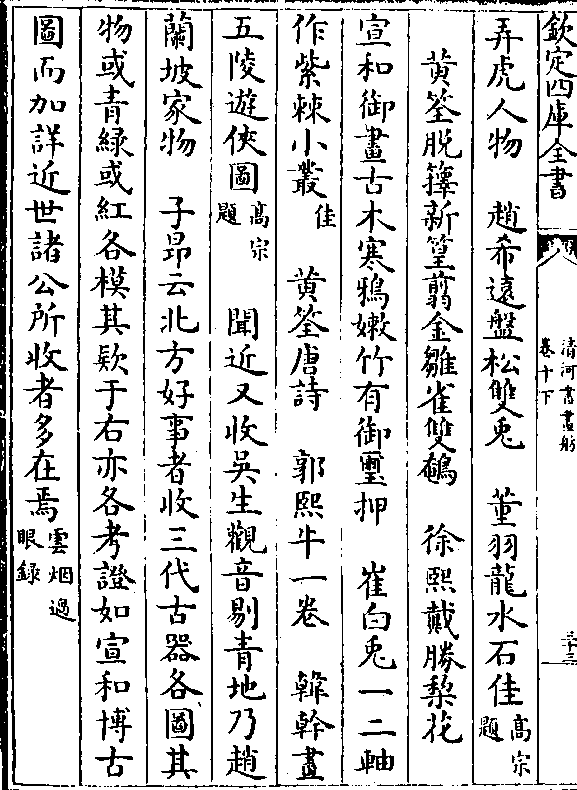 欽定四庫全書
清河書畫舫
卷十下
三十三
弄虎人物　趙希遠盤松雙兎　董羽龍水石佳高宗題
黄筌脱籜新篁翦金雛雀雙鵪　徐熙戴勝梨花
宣和御畫古木寒鴉嫩竹有御璽押　崔白兎一二軸
作紫棘小叢佳　黄筌唐詩　郭熙牛一卷　韓幹畫
五陵遊俠圖高宗題　聞近又收吳生觀音剔青地乃趙
蘭坡家物　子昂云北方好事者收三代古器各圖其
物或青緑或紅各模其欵于右亦各考證如宣和博古
圖而加詳近世諸公所收者多在焉雲烟過眼録